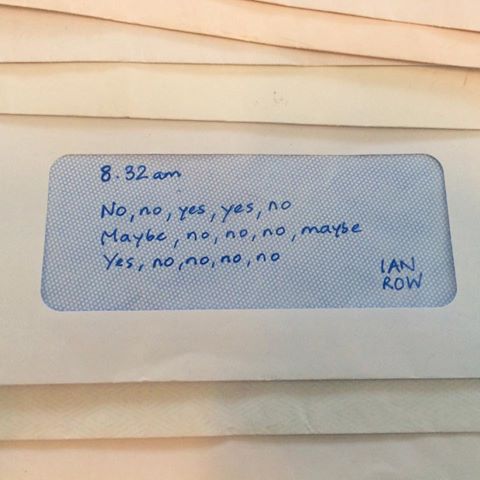 8.32am
No, no, yes, yes, no
Maybe, no, no, no, maybe
Yes, no, no, no, no
IAN
ROW